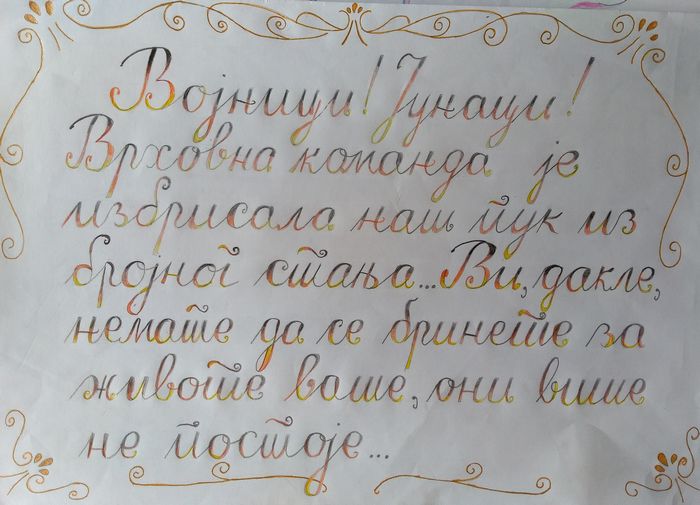 Војници! Јунаци!
Врховна команда је
избрисала наш пук из
бројног стања... Ви, дакле,
немате да се бринете за
животе ваше, они више
не постоје...